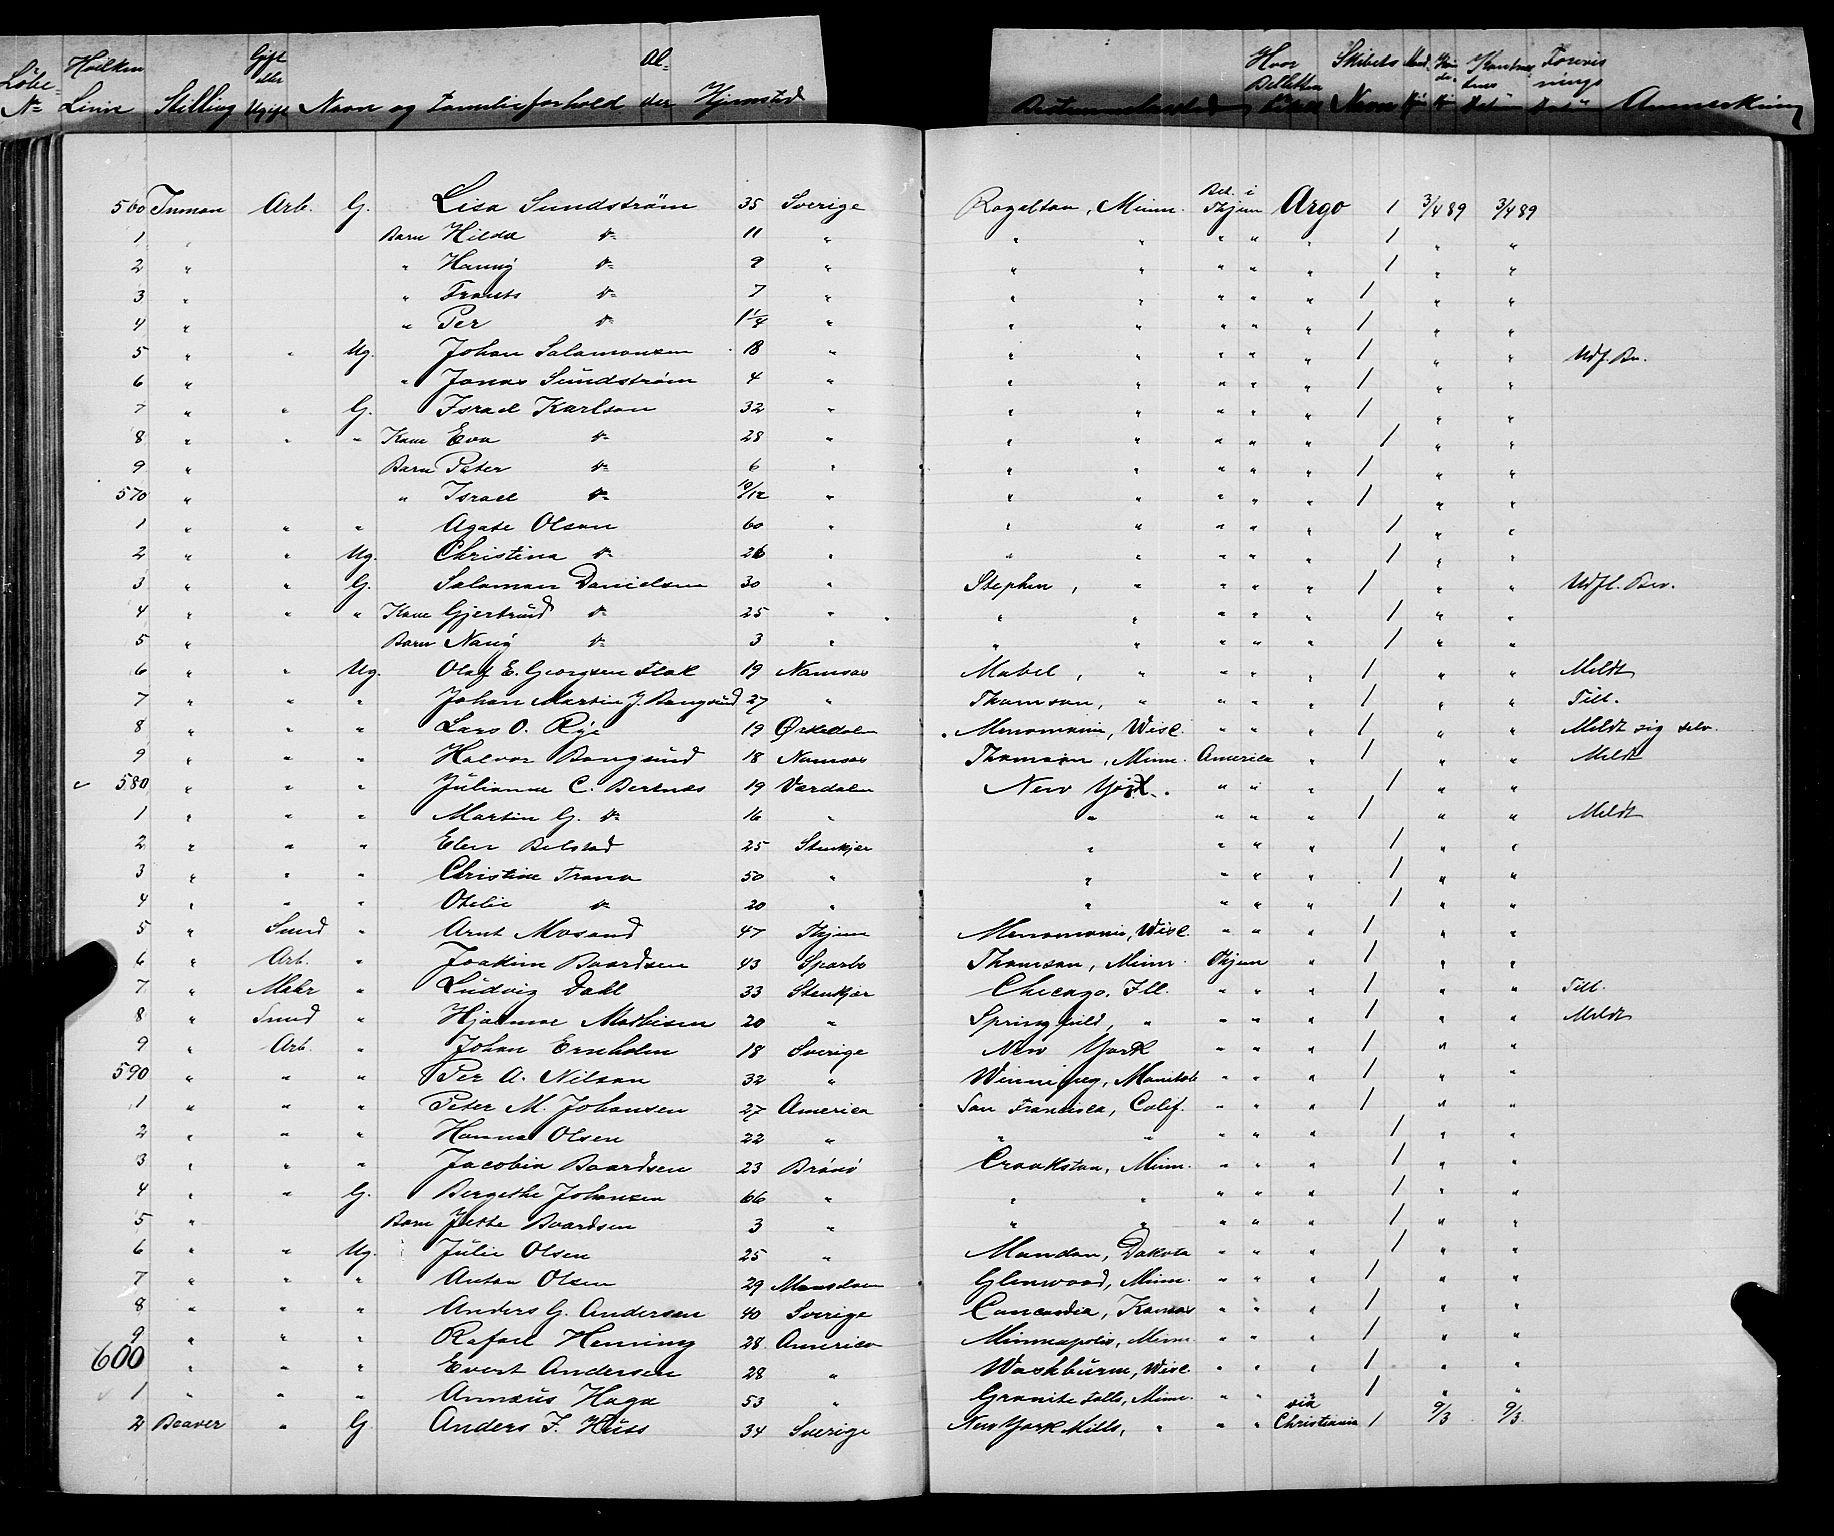 Löbe- No Hvilken Linie Stilling Gift eller Ugift Navn og Familieforhold Al- der Hjemsted Bestemmelsessted Hvor Billetten Skibets Navn Anmerkning
560 Inman Arb. G. Lisa Sundström 35 Sverige Royalton, Minn. Bet. i Thjem Argo 1 3/4 89 3/4 89
1 " Barn Hilda do 11 " " " " " " 1 " "
2 " " Hanny do 9 " " " " " " 1 " "
3 " " Frants do 7 " " " " " " 1 " "
4 " " Per do 1 1/4 " " " " " " 1 " "
5 " " Ug. Johan Salamonsen 18 " " " " " " 1 " " Udf. Bev.
6 " " Jonas Sundström 4 " " " " " " 1 " "
7 " " G. Israel Karlson 32 " " " " " " 1 " "
8 " " " Kone Eva do 28 " " " " " " 1 " "
9 " Barn Peter do 6 " " " " " " 1 " "
570 " " Israel do 10/12 " " " " " " 1 " "
1 " " " Agate Olson 60 " " " " " " 1 " "
2 " " Ug. Christina do 26 " " " " " " 1 " "
3 " " G. Salamon Danielsen 30 " Stephen, " " " " 1 " " Udfl. Bev.
4 " " " Kone Gjertrud do 25 " " " " " " 1 " "
5 " Barn Nanny do 3 " " " " " " 1 " "
6 " " Ug. Olaf E. Georgsen Flak 19 Namsos Mabel, " " " " 1 " " Meldt
7 " " " Johan Martin J. Bangsund 27 " Thomson, " " " " 1 " " Till.
8 " " " Lars O. Rye 19 Ørkedalen Menomonie, Wisc. " " " 1 " " Meldt sig selv.
9 " " " Halvor Bangsund 18 Namsos Thomson, Minn. America " 1 " " Meldt
580 " " " Julianne C. Bertnæs 19 Værdalen New York. " " " 1 " "
1 " " " Martin G. do 16 " " " " " 1 " " Meldt
2 " " " Elen Bilstad 25 Stenkjær " " " " 1 " "
3 " " " Christine Trana 50 " " " " " 1 " "
4 " " " Otelie do 20 " " " " " 1 " "
5 " Smed " Arnt Mosand 47 Thjem Menomonie, Wisc. " " " 1 " "
6 " Arb. " Joakim Baardsen 43 Sparbo Thomson, Minn. Thjem " 1 " "
7 " Maler " Ludvig Dahl 33 Stenkjær Chicago, Ill. " " " 1 " " Till.
8 " Smed " Hjalmar Mathisen 20 " Springfield, " " " " 1 " " Meldt
9 " Arb. " Johan Ernholm 18 Sverige New York " " " 1 " "
590 " " " Per A. Nilson 32 " Winnipeg, Manitob " " " 1 " "
1 " " " Peter M. Johansen 27 America San Francisco, Calif. " " " 1 " "
2 " " " Hanna Olsen 22 " " " " " " 1 " "
3 " " " Jacobin Baardsen 23 Brønø Crookston, Minn. " " " 1 " "
4 " " G. Bergethe Johansen 66 " " " " " " 1 " "
5 " Barn Jette Baardsen 3 " " " " " " 1 " "
6 " " Ug. Julie Olsen 25 " Mandan, Dakota " " " 1 " "
7 " " " Anton Olsen 29 Meosdoen Glenwood, Minn. " " " 1 " "
8 " " " Anders G. Andersen 40 Sverige Concordia, Kansas " " " 1 " "
9 " " " Rafael Hening 28 America Minneapolis, Minn. " " " 1 " "
600 " " " Evert Andersen 28 " Washburn, Wisc. " " " 1 " "
1 " " " Annæus Haga 53 " Granite Falls, Minn. " " 1 " "
2 Beaver " G. Anders F. Huss 34 Sverige New York Mills, " " " via Christiania 1 9/3 9/3